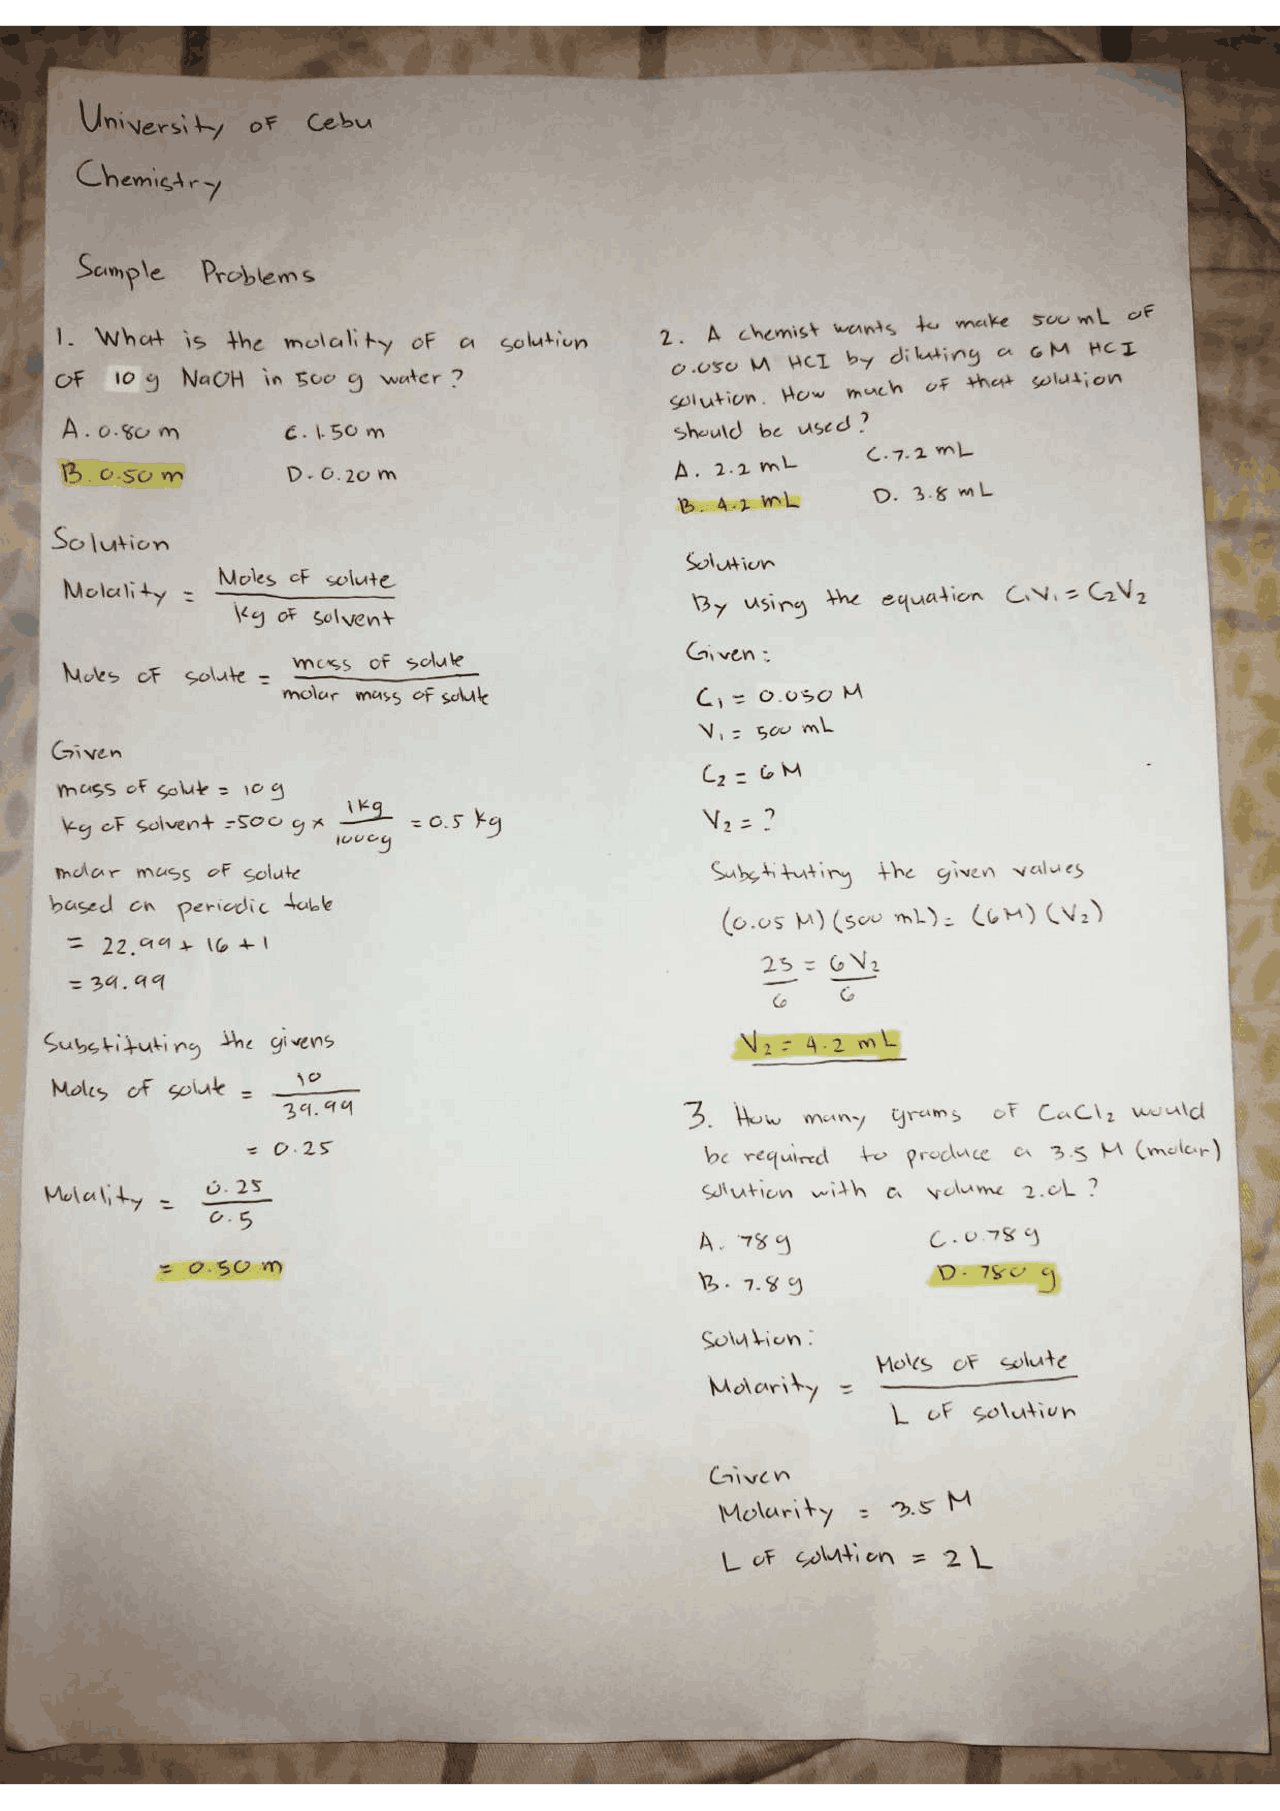 University of Cebu
Chemistry
Sample Problems
1. What is the molality of a solution
of 10 g NaOH in 500 g water?
A. 0.80 m C. 1.50 m
B. 0.50 m D. 0.20 m
Solution
Molality = Moles of solute
kg of solvent
Moles of solute = mass of solute
molar mass of solute
Given
mass of solute = 10 g
kg of solvent = 500 g x 1 kg = 0.5 kg
1000g
molar mass of solute
based on periodic table
= 22.99 + 16 + 1
= 39.99
Substituting the givens
Moles of solute = 10
39.99
= 0.25
Molality = 0.25
0.5
= 0.50 m
2. A chemist wants to make 500 mL of
0.050 M HCI by diluting a 6M HCI
solution. How much of that solution
should be used?
A. 2.2 mL C. 7.2 mL
B. 4.2 mL D. 3.8 mL
Solution
By using the equation C₁V₁ = C₂V₂
Given:
C₁ = 0.050 M
V₁ = 500 mL
C₂ = 6 M
V₂ = ?
Substituting the given values
(0.05 M) (500 mL) = (6M) (V₂)
25 = 6 V₂
6 6
V₂ = 4.2 mL
3. How many grams of CaCl₂ would
be required to produce a 3.5 M (molar)
solution with a volume 2.0L?
A. 78 g C. 0.78 g
B. 7.8 g D. 780 g
Solution:
Molarity = Moles of solute
L of solution
Given
Molarity = 3.5 M
L of solution = 2 L